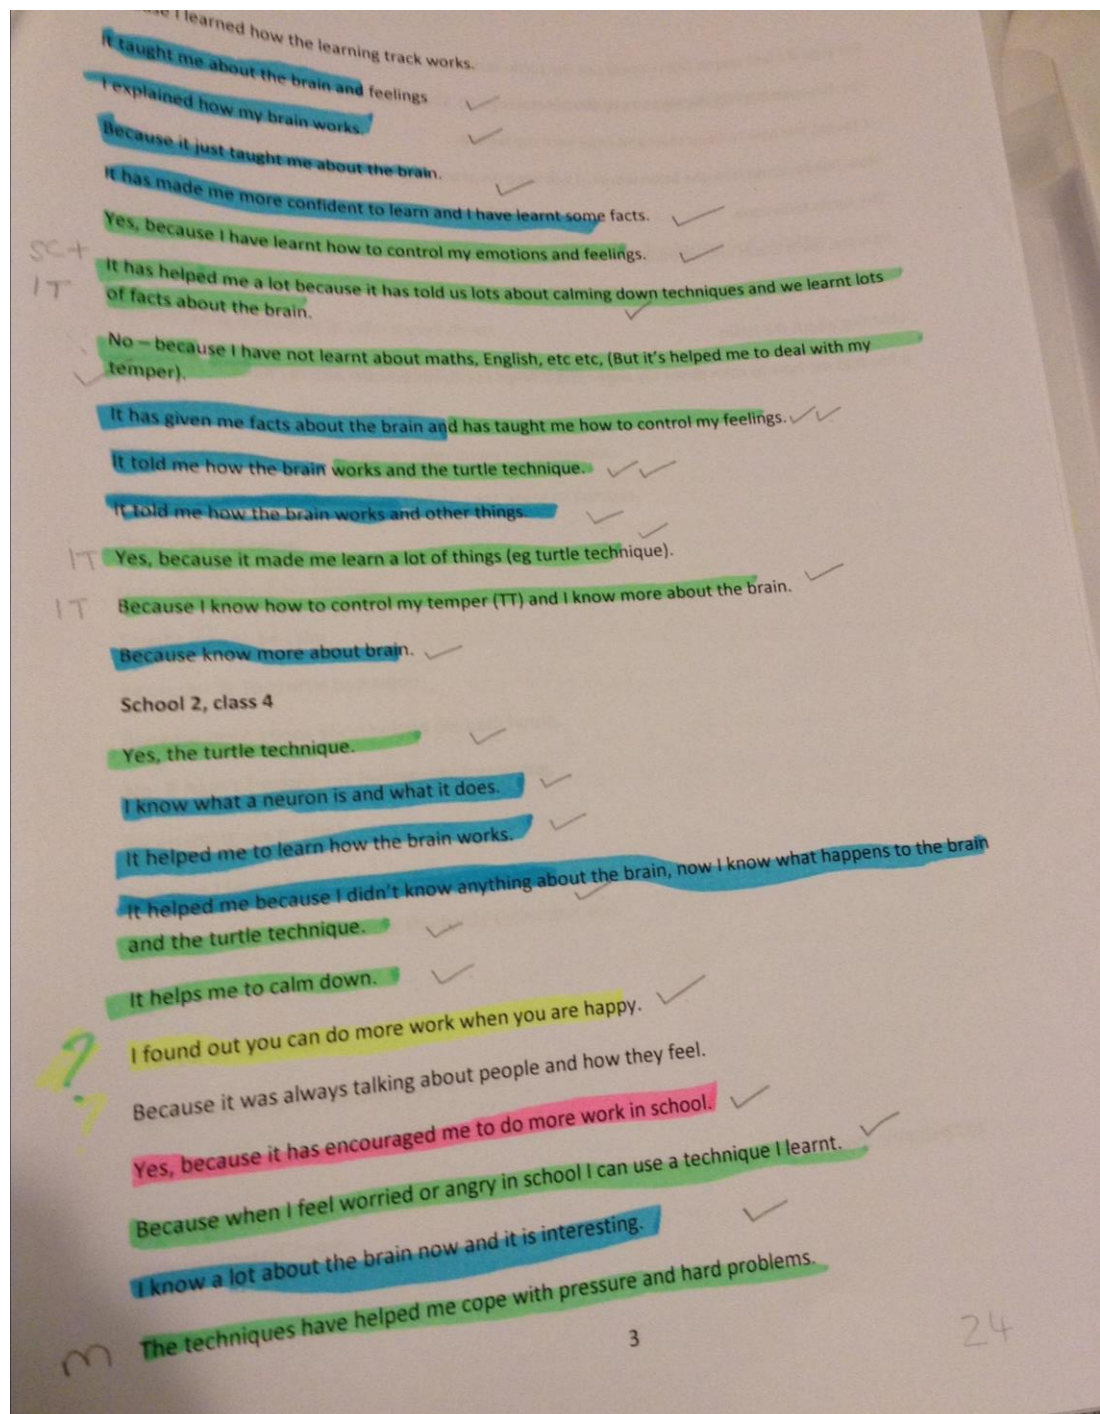 I learned how the learning track works.
It taught me about the brain and feelings
I explained how my brain works.
Because it just taught me about the brain.
It has made me more confident to learn and I have learnt some facts.
Yes, because I have learnt how to control my emotions and feelings.
SC+
IT
It has helped me a lot because it has told us lots about calming down techniques and we learnt lots
of facts about the brain.
No – because I have not learnt about maths, English, etc etc, (But it's helped me to deal with my
temper).
It has given me facts about the brain and has taught me how to control my feelings.
It told me how the brain works and the turtle technique.
It told me how the brain works and other things.
IT Yes, because it made me learn a lot of things (eg turtle technique).
IT Because I know how to control my temper (TT) and I know more about the brain.
Because know more about brain.
School 2, class 4
Yes, the turtle technique.
I know what a neuron is and what it does.
It helped me to learn how the brain works.
It helped me because I didn't know anything about the brain, now I know what happens to the brain
and the turtle technique.
It helps me to calm down.
? I found out you can do more work when you are happy.
? Because it was always talking about people and how they feel.
Yes, because it has encouraged me to do more work in school.
Because when I feel worried or angry in school I can use a technique I learnt.
I know a lot about the brain now and it is interesting.
m The techniques have helped me cope with pressure and hard problems.
3
24